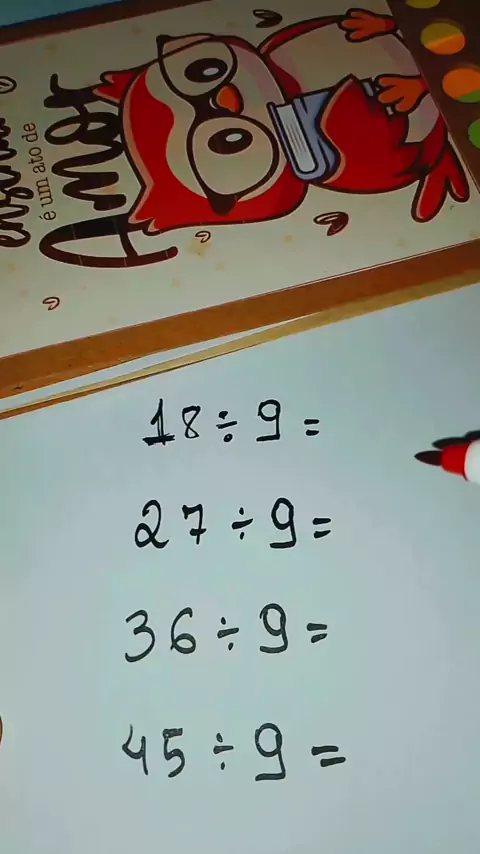 é um ato de
Amor
18÷9=
27÷9=
36÷9=
45÷9=